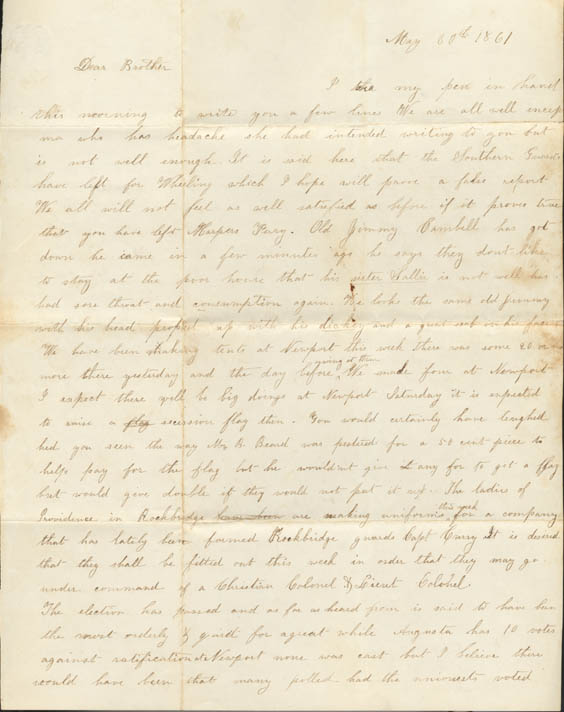 May 30th 1861
Dear Brother
I my pen in hand
this morning to write you a few lines We are all well incep
ma who has headache she had intended writing to you but
is not well enough. It is said here that the Southern Guards
have left for Wheeling which I hope will prove a false report.
We all will not feel as well satisfied as before if it proves true
that you have left Harpers Fery. Old Jimmy has got
down he came in a few minutes ago he says they dont like
to stay at the poor house that his sister Nallie is not well has
had sore throat and consumption again. He looks the same old
with his head proped up with his and a great on his
We have been making tents at Newport this week there was some 20 or
more there yesterday and the day before We made four at Newport
I expect there will be big doings at Newport Saturday it is expected
to raise a flag secession flag then. You would certainly have laughed
had you seen the way Mr B. Beard was for a 50 cent piece to
help pay for the flag but he wouldnt give any for to got a flag
but would give double if they would not put it up. The ladies of
Providence in Rockbridge have been are making uniforms this week for a company
that has lately been formed Rockbridge guards Capt Curry It is desired
that they shall be fitted out this week in order that they may go
under command of a Christian Colonel & Lieut Colohel
The election has passed and as far as heard from is said to have been
the most orderly & quiet for a great while Augusta has 10 votes
against ratification at Newport none was cast but I believe there
would have been that many polled had the unionests voted